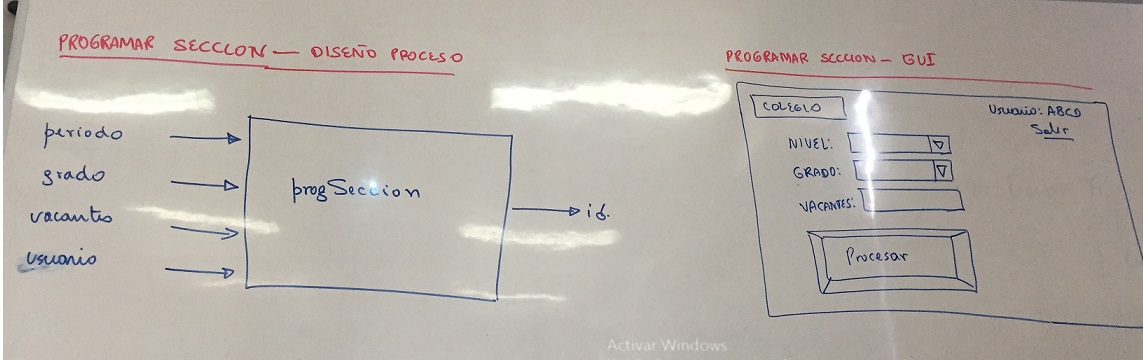 PROGRAMAR SECCION — DISEÑO PROCESO
periodo
grado
vacantes
usuario
progSeccion
id.
PROGRAMAR SECCION — GUI
COLEGIO
Usuario: ABCD
Salir
NIVEL:
GRADO:
VACANTES:
Procesar
Activar Windows